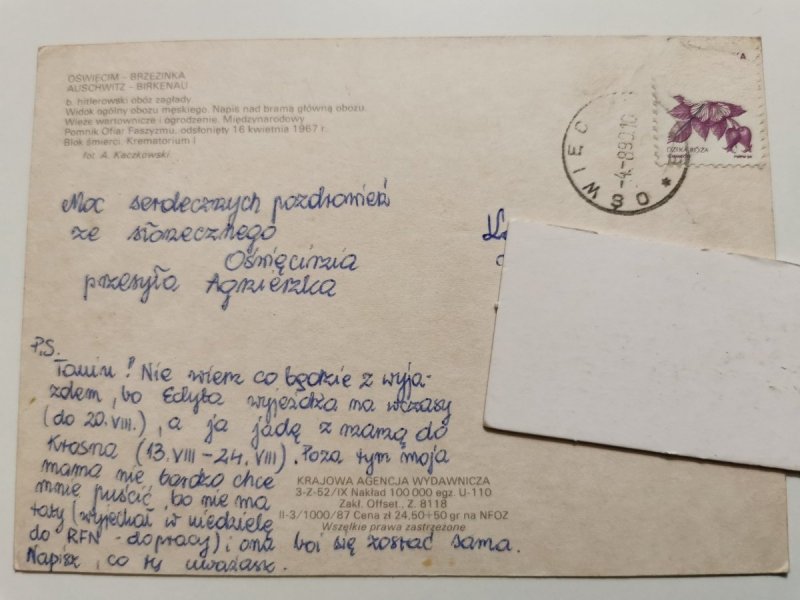 OŚWIĘCIM - BRZEZINKA
AUSCHWITZ - BIRKENAU
b. hitlerowski obóz zagłady.
Widok ogólny obozu męskiego. Napis nad bramą główną obozu.
Wieże wartownicze i ogrodzenie. Międzynarodowy
Pomnik Ofiar Faszyzmu, odsłonięty 16 kwietnia 1967 r.
Blok śmierci. Krematorium I
fot. A. Kaczkowski
OŚWIĘC
-4.-8.89
DZIKA RÓŻA
Moc serdecznych pozdrowień
ze słonecznego
Oświęcimia
przesyła Agnieszka
P.S.
! Nie wiem co będzie z wyja-
zdem, bo Edyta wyjeżdża na wczasy
(do 20.VIII.), a ja jadę z mamą do
Krosna (13.VIII-24.VIII). Poza tym moja
mama nie bardzo chce
mnie puścić, bo nie ma
taty (wyjechał w niedzielę
do RFN - do pracy) i ona boi się zostać sama.
Napisz, co ty uważasz.
KRAJOWA AGENCJA WYDAWNICZA
3-Z-52/IX Nakład 100 000 egz. U-110
Zakł. Offset., Z. 8118
II-3/1000/87 Cena zł 24,50+50 gr na NFOZ
Wszelkie prawa zastrzeżone